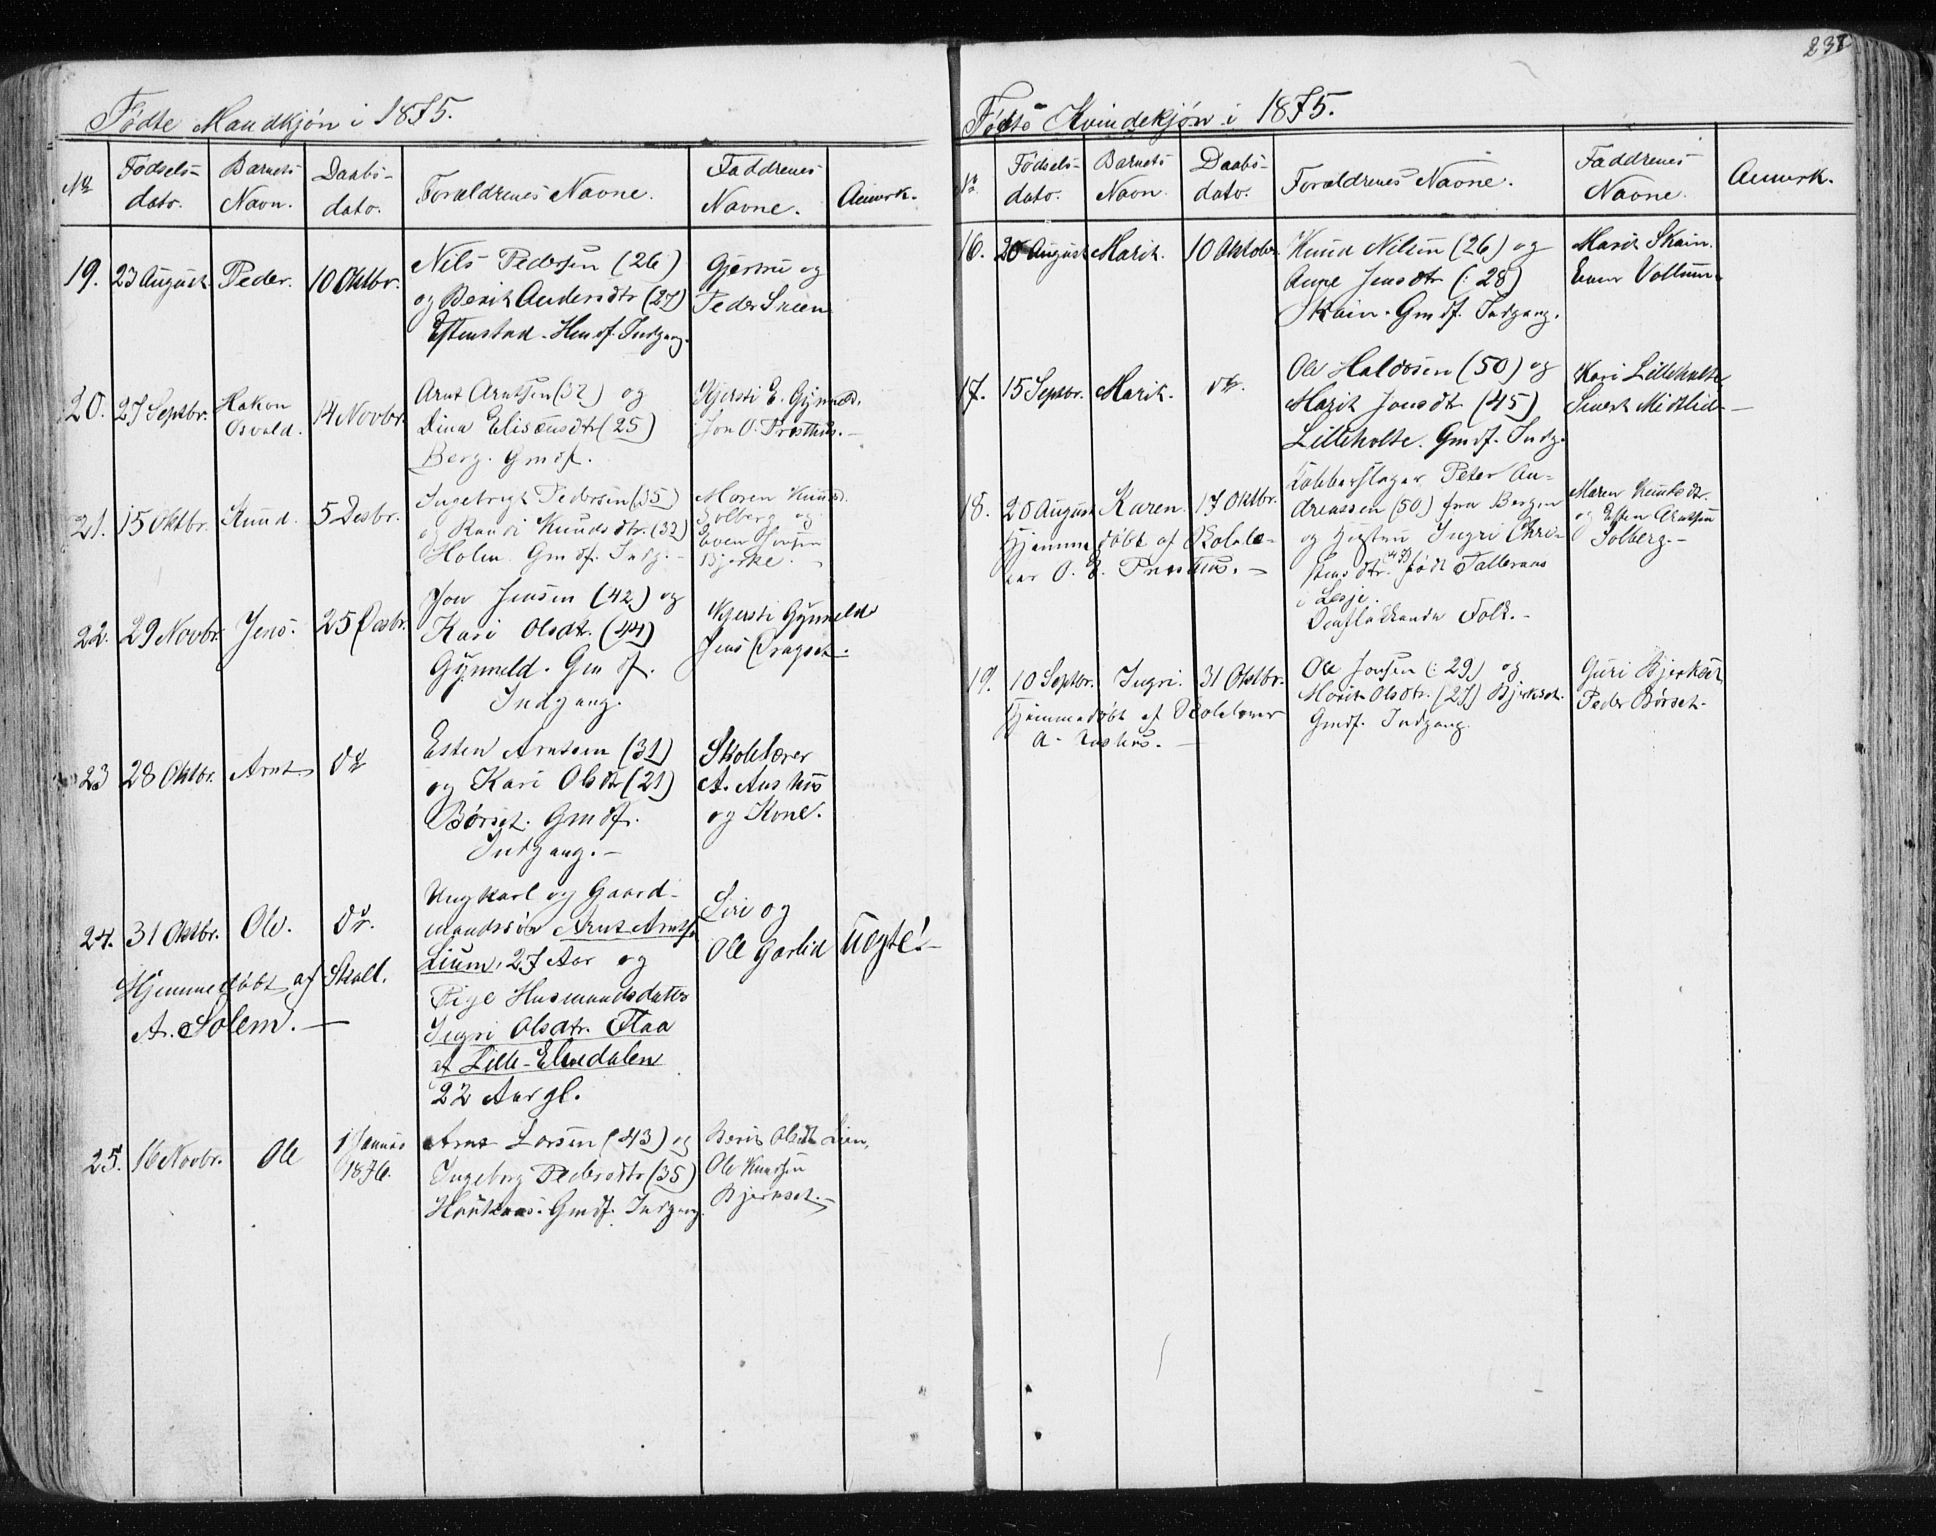 237
Fødte Mandkjøn i 1875.
No
Fødsels-
dato.
Barnets
Navn.
Daabs-
dato.
Forældrenes Navne.
Faddrenes
Navne.
Anmrk.
19. 23 August. Peder. 10 Oktbr.
Nils Pedersen (26)
og Berit Andersdtr (27)
Estenstad. Hmdf. Indgang.
Gjertru og
Peder Snien
20. 27 Septbr. Hakon
Osvald. 14 Novbr.
Arnt Arntsen (32) og
Dina Eliseusdtr (25)
Berg. Gmdf.
Kjersti E. Gynneld.
Jon O. Prosthus.
21. 15 Oktbr. Knud. 5 Desbr.
Ingebrigt Pedersen (35)
og Randi Knudsdtr. (32)
Holen. Gmdf. Indg.
Maren Knudsd.
Solberg og
Even Jonsen
Bjerke.
22. 29 Novbr. Jens. 25 Desbr.
Jon Jensen (42) og
Kari Olsdtr. (44)
Gynneld. Gmdf.
Indgang.
Kjersti Gynneld
Jens Dragset.
23 28 Oktbr. Arnt Do
Esten Arntsen (31)
og Kari Olsdtr (21)
Børset. Gmdf.
Indgang. -
Skolelærer
A. Aushus
og Kone.
24. 31 Oktbr. Ole. Do.
Hjemmedøbt af Skoll.
A. Solem. -
Ungkarl og Gaard-
mandssøn Arnt Arntsn
Lium, 27 Aar og
Pige Husmandsdatter
Ingri Olsdtr. Flaa
af Lille-Elvedalen
22 Aar gl.
Siri og
Ole Garlid
Uegte! -
25. 16 Novbr. Ole 1 Januar
1876.
Arnt Larsen (43) og
Ingeborg Pedersdtr (35)
Gmdf. Indgang.
Berit Olsdtr Lien,
Ole Knudsen
Bjerkset. -
Fødte Kvindekjøn i 1875.
No.
Fødsels-
dato.
Barnets
Navn.
Daabs-
dato.
Forældrenes Navne.
Faddrenes
Navne.
Anmrk.
16. 20 August Marit. 10 Oktober
Knud Nilsen (26) og
Anne Jensdtr (: 28)
Skain. Gmdf. Indgang.
Marit Skain.
Even Vollum -
17. 15 Septbr. Marit. Do.
Ole Haldosen (50) og
Marit Jonsdtr (45)
Lilleholte. Gmdf. Indg.
Kari Lilleholte
Sivert Mistlid -
18. 20 August Karen. 17 Oktbr.
Hjemmedøbt af Skolelæ-
rer O. E. Prosthus. -
Kobberslager Peter An-
dreassen (50) fra Bergen
og Hustru Ingri Chri-
stensdtr. født Talleraas
i Lesje.
Omflakkende Folk. -
Maren Knudsdtr.
og Esten Arntsen
Solberg. -
19. 10 Septbr. Ingri. 31 Oktbr.
Hjemmedøbt af Skolelærer
A. Aushus. -
Ole Jonsen (: 29) og
Marit Olsdtr. (27) Bjerkset.
Gmdf. Indgang.
Guri Bjerkset
Peder Børset.